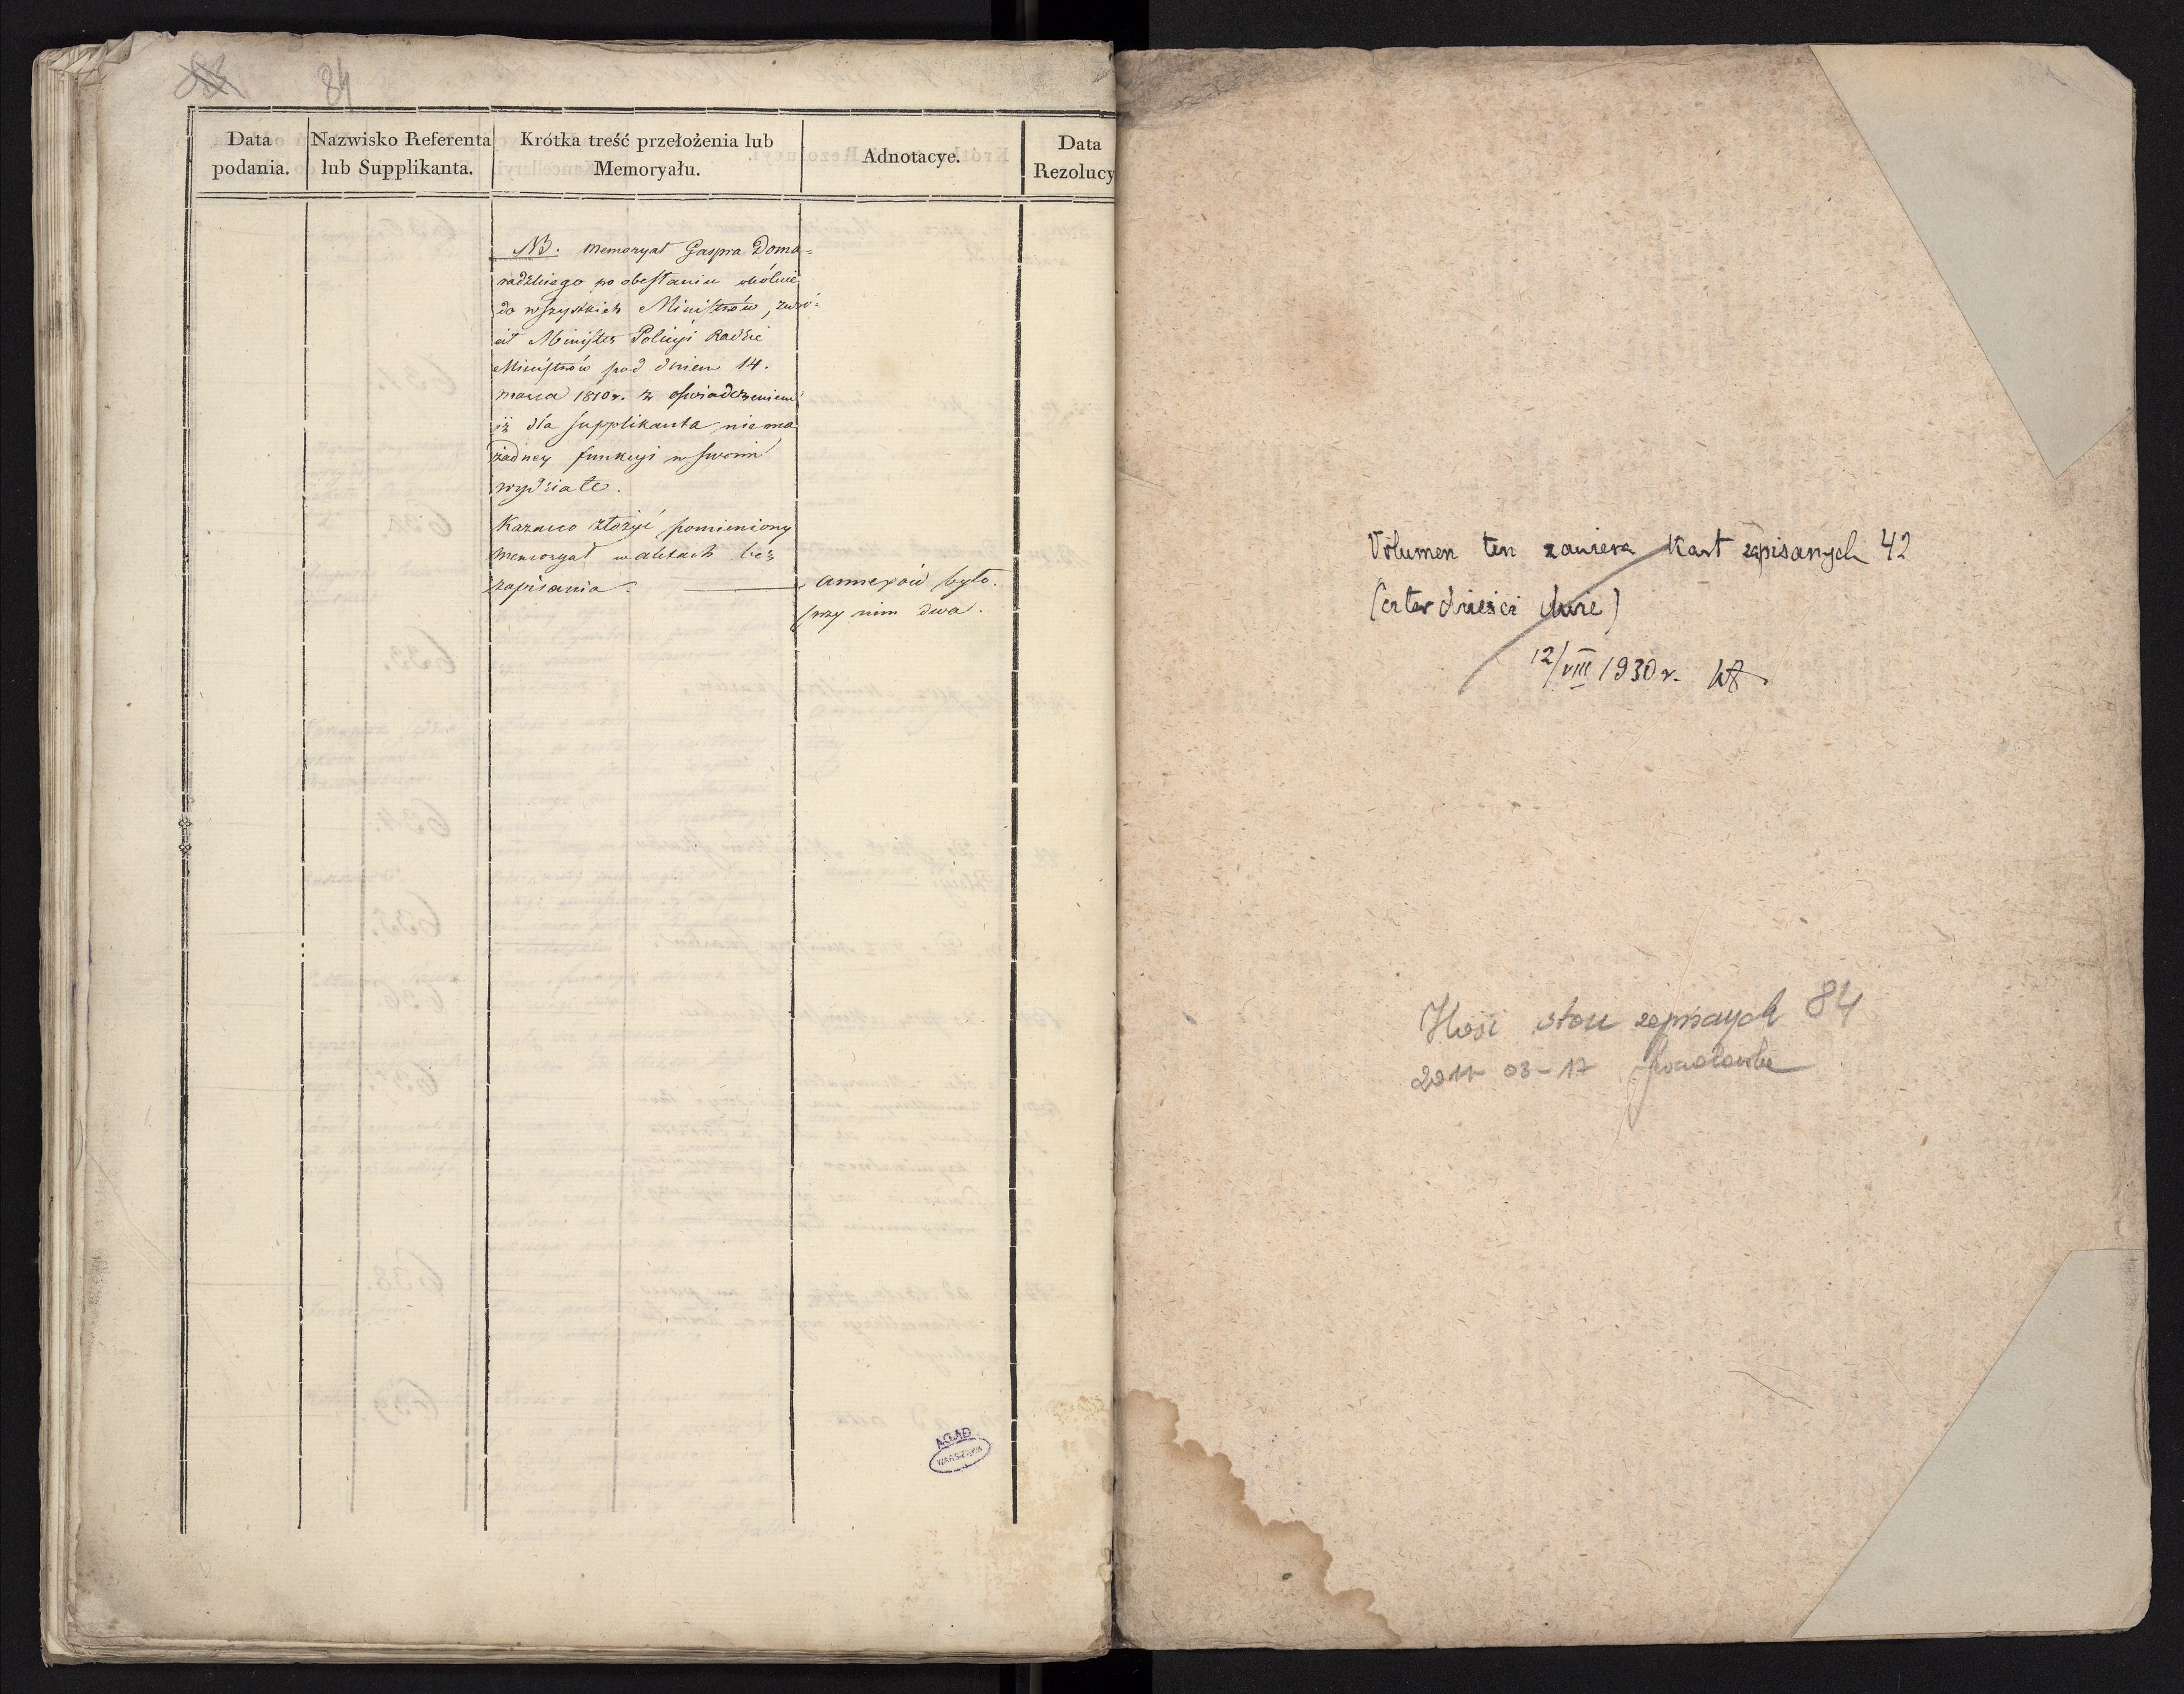 84
Data podania.
Nazwisko Referenta lub Supplikanta.
Krótka treść przełożenia lub Memoryału.
Adnotacye.
Data Rezolucy
NB. Memoryał Gaspra Doma-
radzkiego po obesłaniu okólnie
do wszystkich Ministrów, zwró-
cił Minister Policyi Radzie
Ministrów pod dniem 14.
marca 1810 r. z oświadczeniem
iż dla supplikanta niema
żadney funkcyi w swoim
wydziale.
Kazano złożyć pomieniony
memoryał w aktach bez
zapisania.
annexów było
przy nim dwa.
AGAD
WARSZAWA
Volumen ten zawiera Kart zapisanych 42
(czterdzieści dwie)
12/VIII 1930 r.
Ilość stron zapisanych 84
2011-03-17